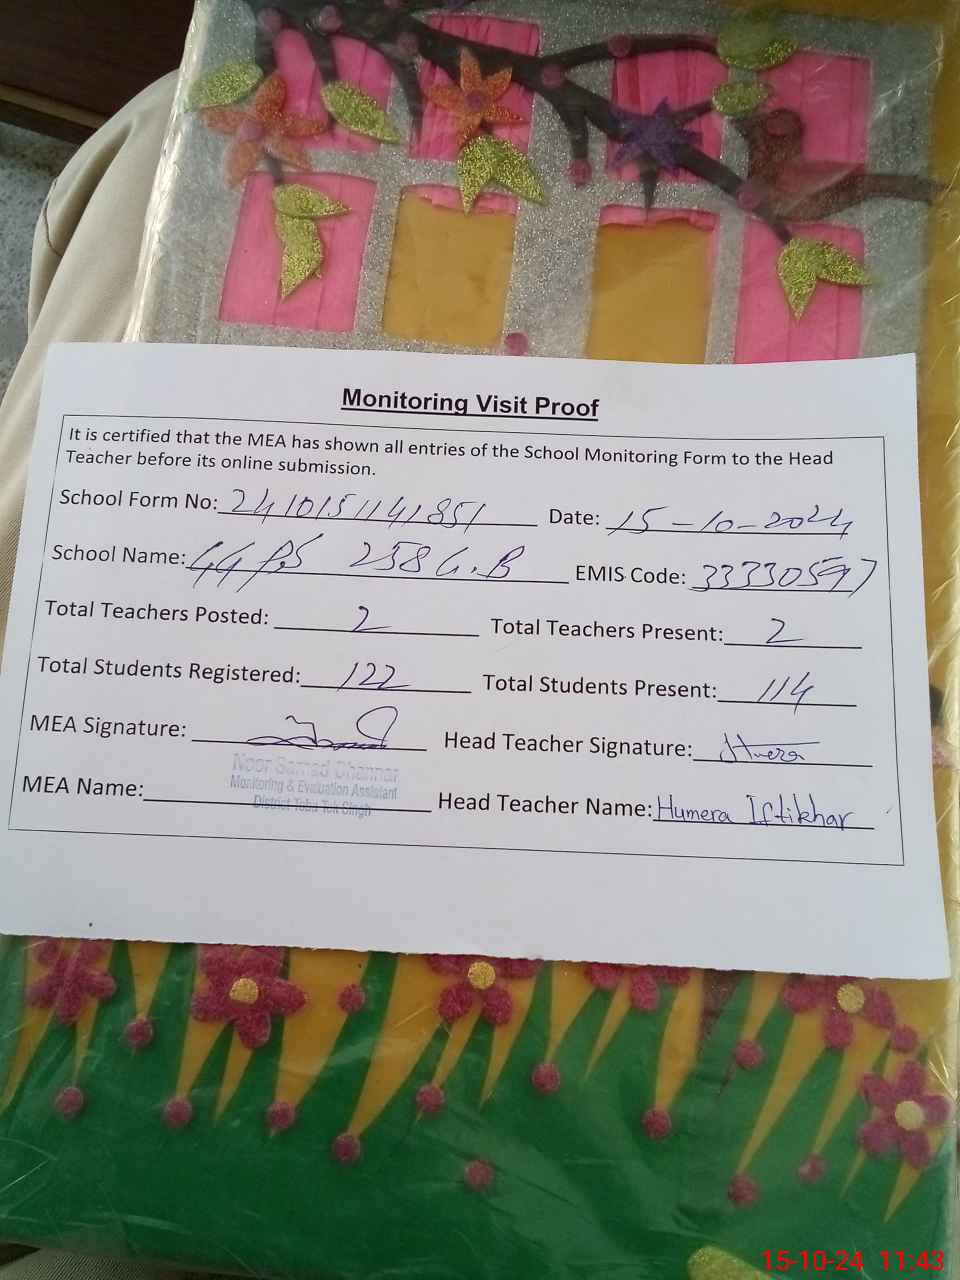 Monitoring Visit Proof
It is certified that the MEA has shown all entries of the School Monitoring Form to the Head
Teacher before its online submission.
School Form No: 2410151141851 Date: 15-10-2024
School Name: GGPS 258 G.B EMIS Code: 33330597
Total Teachers Posted: 2 Total Teachers Present: 2
Total Students Registered: 122 Total Students Present: 114
MEA Signature: Head Teacher Signature: Humera
Noor Samad Channar
Monitoring & Evaluation Assistant
District Toba Tek Singh
MEA Name: Head Teacher Name: Humera Iftikhar
15-10-24 11:43